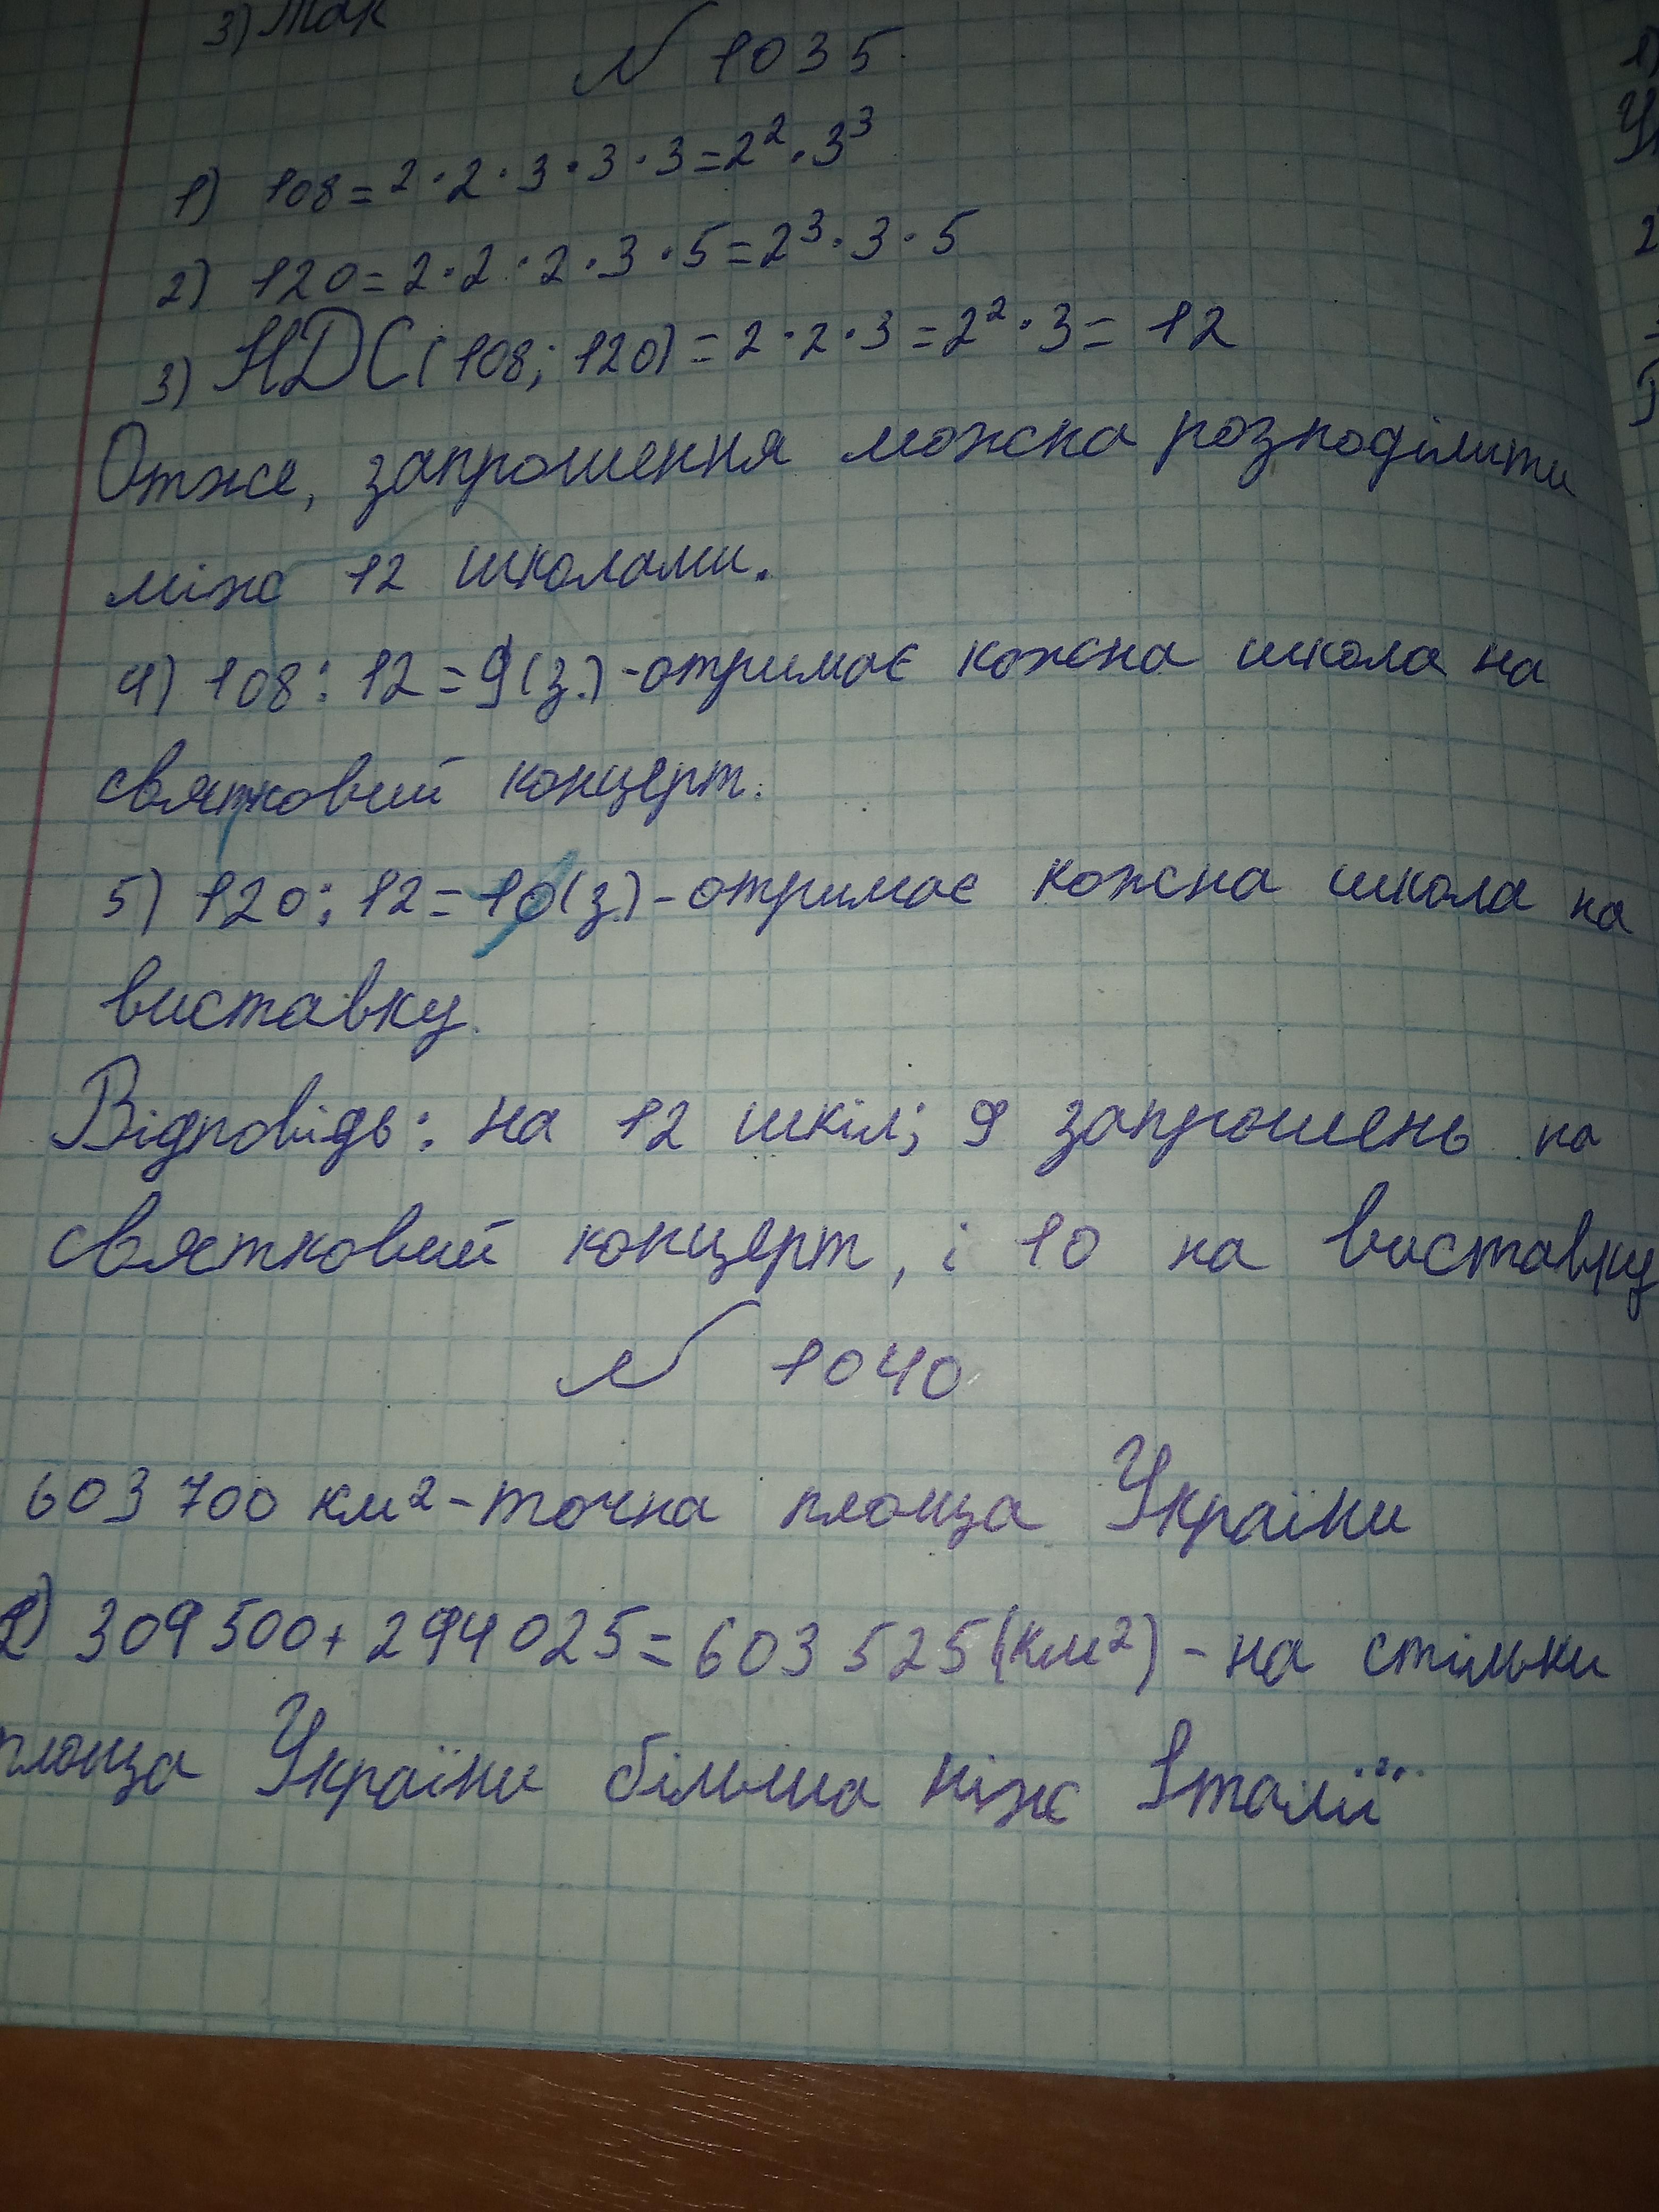 3) Так
№ 1035.
1) 108 = 2 · 2 · 3 · 3 · 3 = 2² · 3³
2) 120 = 2 · 2 · 2 · 3 · 5 = 2³ · 3 · 5
3) НДС (108; 120) = 2 · 2 · 3 = 2² · 3 = 12
Отже, запрошення можна розподілити
між 12 школами.
4) 108 : 12 = 9 (з.) - отримає кожна школа на
святковий концерт.
5) 120 : 12 = 10 (з.) - отримає кожна школа на
виставку.
Відповідь: на 12 шкіл; 9 запрошень на
святковий концерт, і 10 на виставку
№ 1040
603 700 км² - точна площа України
2) 309 500 + 294 025 = 603 525 (км²) - на стільки
площа України більша ніж Італії